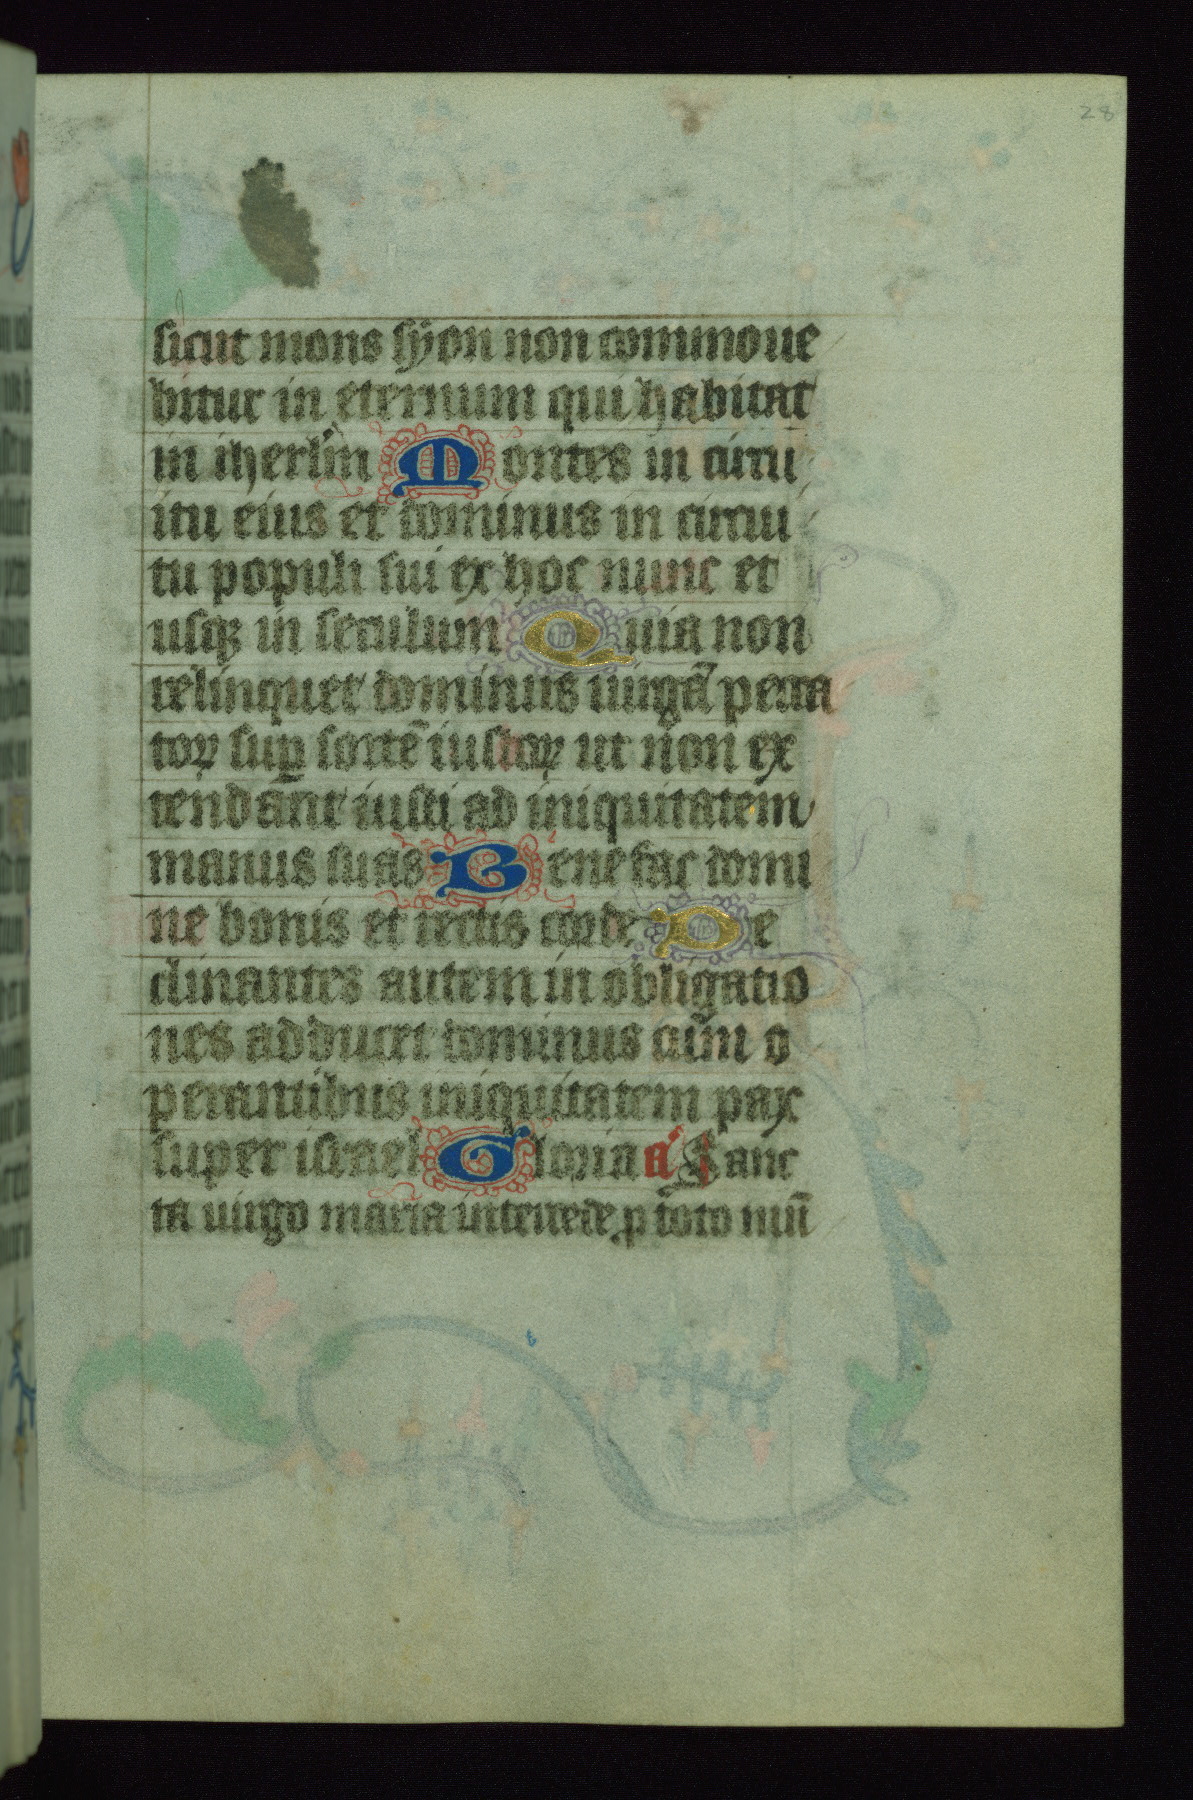 28
sicut mons syon non commoue
bitur in eternum qui habitat
in iherlm̄ Montes in circu
itu eius et dominus in circui
tu populi sui ex hoc nunc et
usqꝫ in seculum Quia non
relinquet dominus uirgā pecca
toꝝ suꝑ sortē iustoꝝ ut non ex
tendant iusti ad iniquitatem
manus suas Benefac domi
ne bonis et rectis corde De
clinantes autem in obligatio
nes adducet dominus cum o
perantibus iniquitatem pax
super israel Gloria a Sanc
ta uirgo maria intercede ꝓ toto mūn